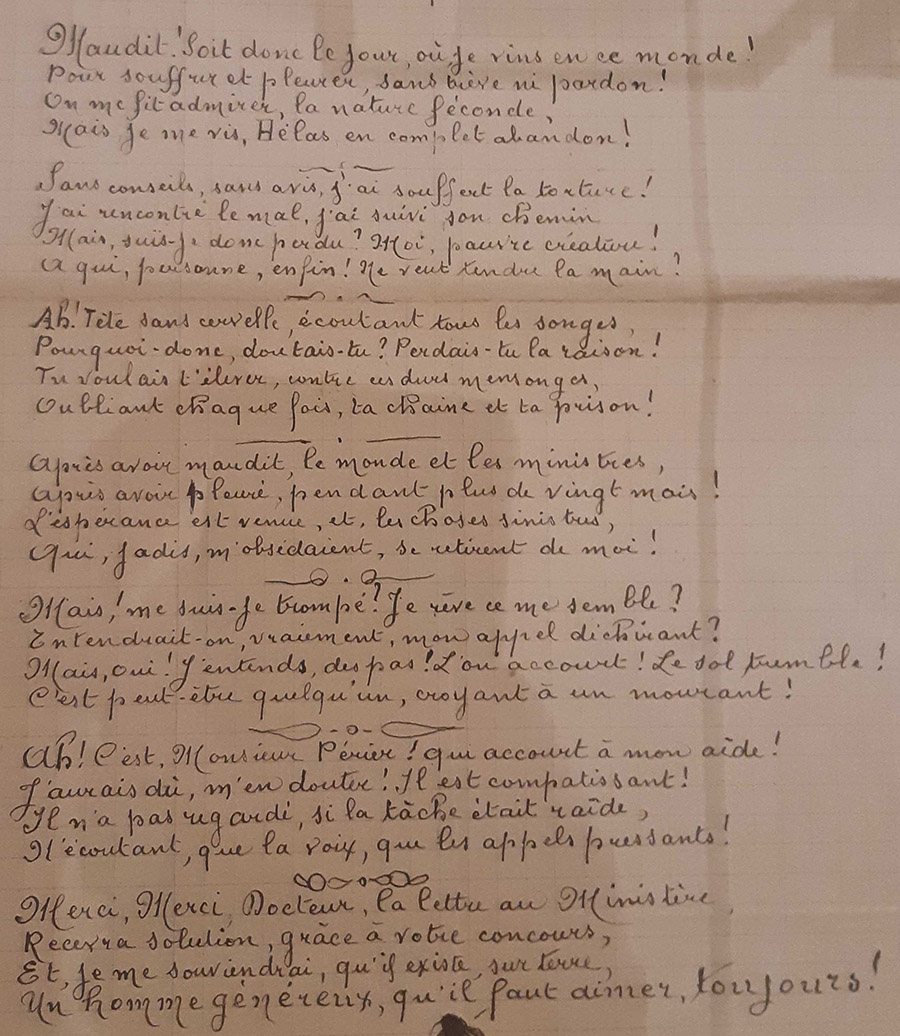 Maudit! Soit donc le jour, où, je vins en ce monde!
Pour souffrir et pleurer, sans trève ni pardon!
On me fit admirer, la nature féconde,
Mais je me vis, Hélas en complet abandon!
Sans conseils, sans avis, j'ai souffert la torture!
J'ai rencontré le mal, j'ai suivi son chemin
Mais, suis-je donc perdu? Moi, pauvre créature!
A qui, personne, enfin! Ne veut tendre la main?
Ah! Tête sans cervelle, écoutant tous les songes,
Pourquoi-donc, doutais-tu? Perdais-tu la raison!
Tu voulais t'élever, contre ces durs mensonges,
Oubliant chaque fois, ta chaine et ta prison!
Après avoir maudit, le monde et les ministres,
Après avoir pleuré, pendant plus de vingt mois!
L'espérance est venue, et, les choses sinistres,
Qui, jadis, m'obsédaient, se retirent de moi!
Mais,! me suis-je trompé? Je rêve ce me semble?
Entendrait-on, vraiement, mon appel déchirant?
Mais, oui! J'entends, des pas! L'on accourt! Le sol tremble!
C'est peut-être quelqu'un, croyant à un mourant!
Ah! C'est, Monsieur Périer! qui accourt à mon aîde!
J'aurais dû, m'en douter! Il est compatissant!
Il n'a pas regardé, si la tâche était raîde,
N'écoutant, que la voix, que les appels pressants!
Merci, Merci, Docteur, la lettre au Ministère,
Recevra solution, grâce à votre concours,
Et, je me souviendrai, qu'il existe, sur terre,
Un homme généreux, qu'il faut aimer, toujours!